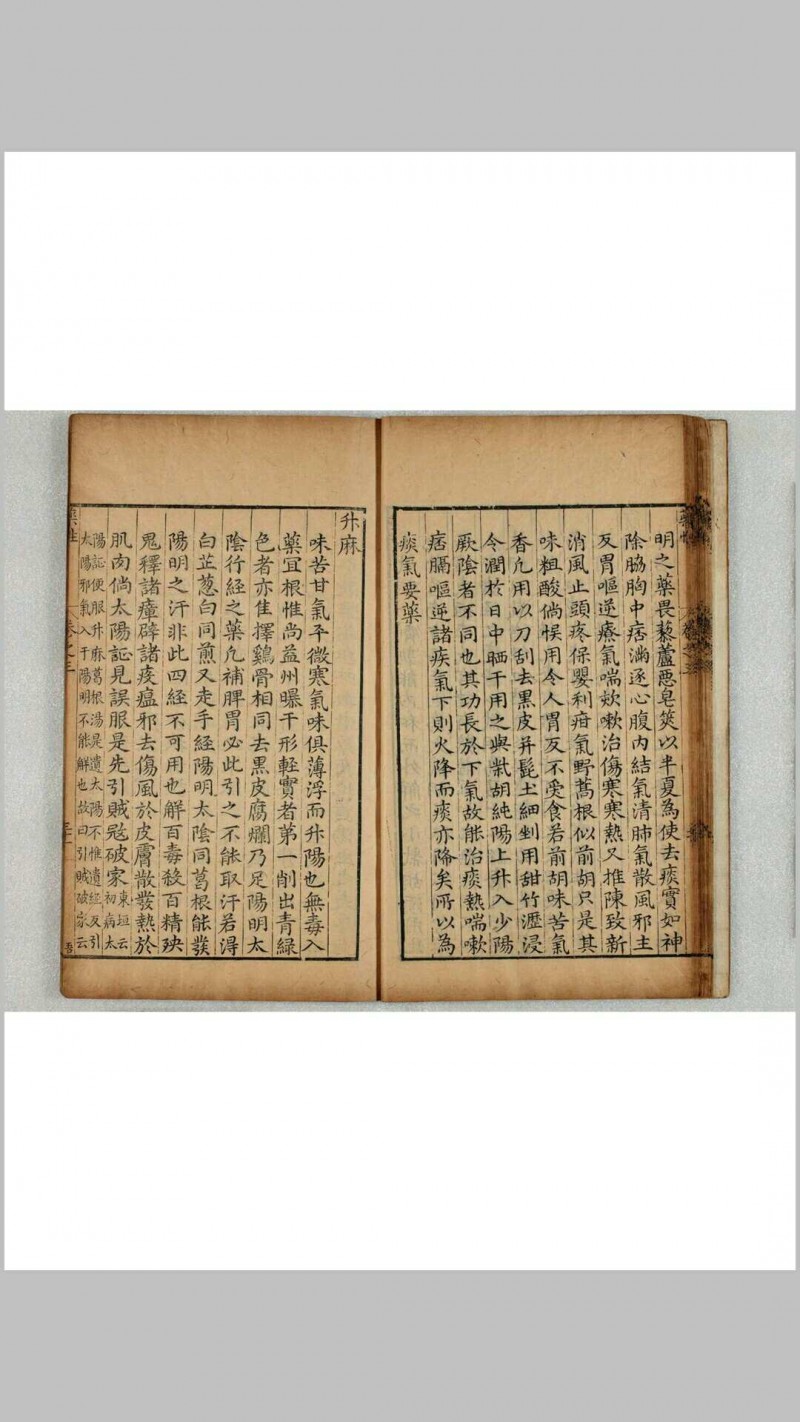 明之藥畏藜蘆惡皂筴以半夏為使去痰實如神
除脇胸中痞滿逐心腹內結氣清肺氣散風邪主
反胃嘔逆療氣喘欬嗽治傷寒寒熱又推陳致新
消風止頭疼保嬰利疳氣野蒿根似前胡只是其
味粗酸倘悮用令人胃反不受食若前胡味苦氣
香凢用以刀刮去黑皮并髭土細剉用甜竹瀝浸
令潤於日中晒干用之與柴胡純陽上升入少陽
厥陰者不同也其功長於下氣故能治痰熱喘嗽
痞膈嘔逆諸疾氣下則火降而痰亦降矣所以為
痰氣要藥
升麻
味苦甘氣平微寒氣味俱薄浮而升陽也無毒入
藥宜根惟尚益州曝干形輕實者第一削出青綠
色者亦佳擇鷄骨相同去黑皮腐爛乃足陽明太
陰行經之藥凢補脾胃必此引之不能取汗若得
白芷葱白同煎又走手經陽明太陰同葛根能發
陽明之汗非此四經不可用也解百毒殺百精殃
鬼釋諸瘴辟諸疫瘟邪去傷風於皮膚散發熱於
肌肉倘太陽証見誤服是先引賊寇破家東垣云初病太
陽証便服升麻葛根湯是遺太陽不惟遺經反引
太陽邪氣入于陽明不能解也故曰引賊破家云